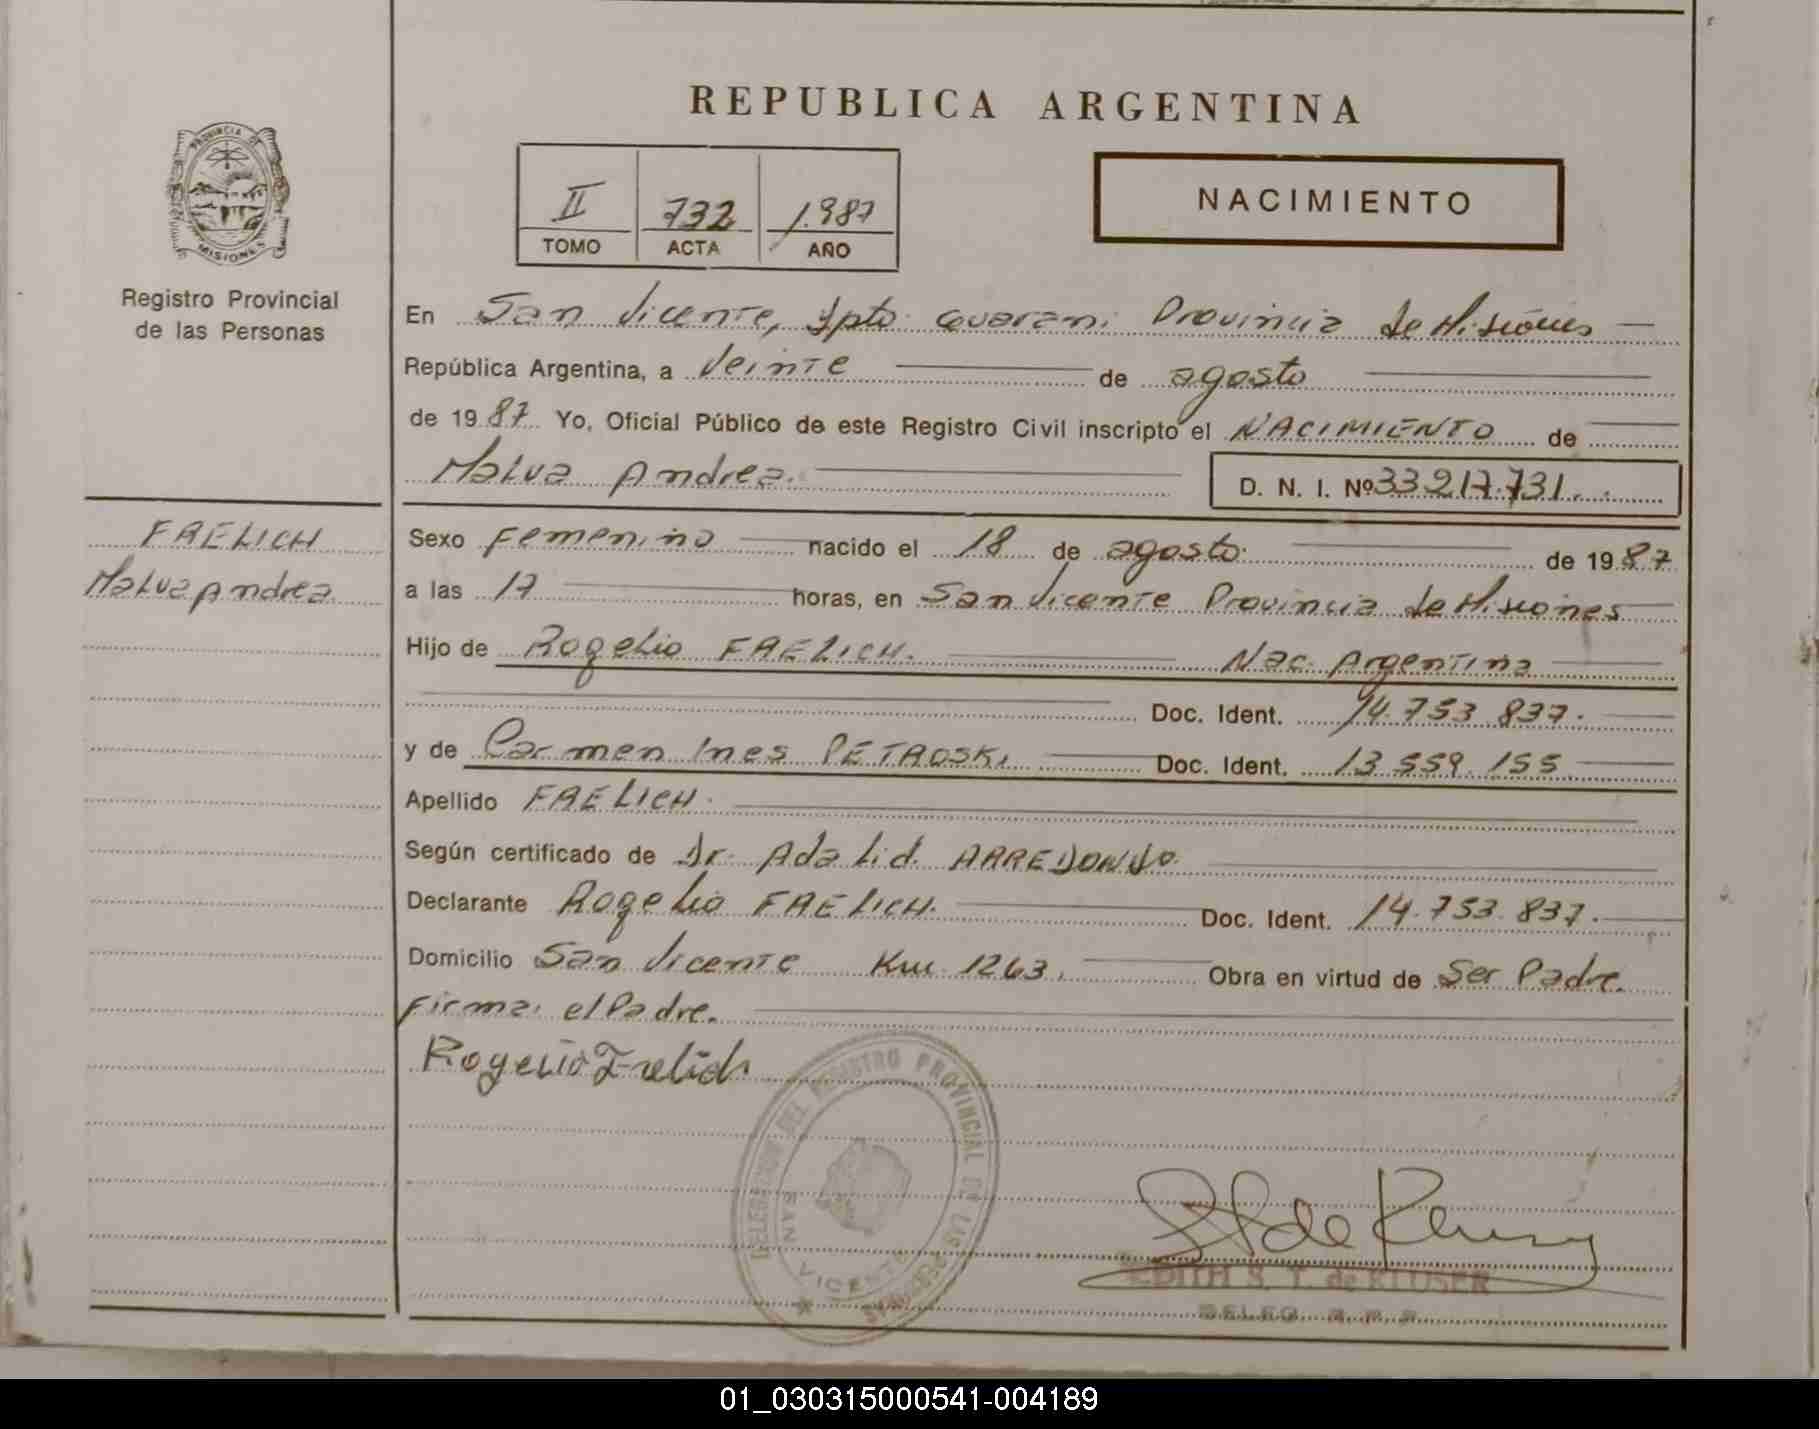 REPUBLICA ARGENTINA
PROVINCIA DE MISIONES
Registro Provincial
de las Personas
II 732 1.987
TOMO ACTA AÑO
NACIMIENTO
En San Vicente, Dpto Guarani Provincia de Misiones
República Argentina, a Veinte de agosto
de 1987 Yo, Oficial Público de este Registro Civil inscripto el NACIMIENTO de
Malva Andrea. D. N. I. Nº 33.217.731.
FRELICH
Malva Andrea
Sexo Femenino nacido el 18 de agosto de 1987
a las 17 horas, en San Vicente Provincia de Misiones
Hijo de Rogelio FRELICH. Nac. Argentina
Doc. Ident. 14.753.837.
y de Carmen Ines PETROSKI Doc. Ident. 13.559.155
Apellido FRELICH.
Según certificado de Dr. Adalid. ARREDONDO.
Declarante Rogelio FRELICH. Doc. Ident. 14.753.837.
Domicilio San Vicente Km 1263. Obra en virtud de Ser Padre.
Firma: el Padre.
Rogelio Frelich
DELEGACION DEL REGISTRO PROVINCIAL DE LAS PERSONAS
SAN VICENTE
EDITH S. T. de KLUSER
DELEG. R. P. P.
01_030315000541-004189